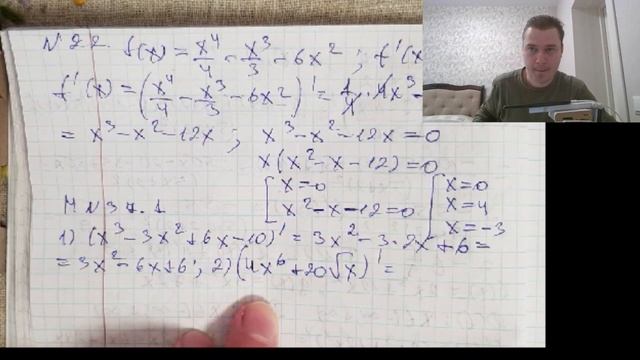 N 22. f(x) = x⁴/4 - x³/3 - 6x²; f'(x
f'(x) = (x⁴/4 - x³/3 - 6x²)' = 1/4 · 4x³ -
= x³ - x² - 12x; x³ - x² - 12x = 0
x(x² - x - 12) = 0
[ x = 0 [ x = 0
x² - x - 12 = 0 x = 4
x = -3
N 37.1
1) (x³ - 3x² + 6x - 10)' = 3x² - 3·2x + 6 =
= 3x² - 6x + 6; 2) (4x⁶ + 20√x)' =